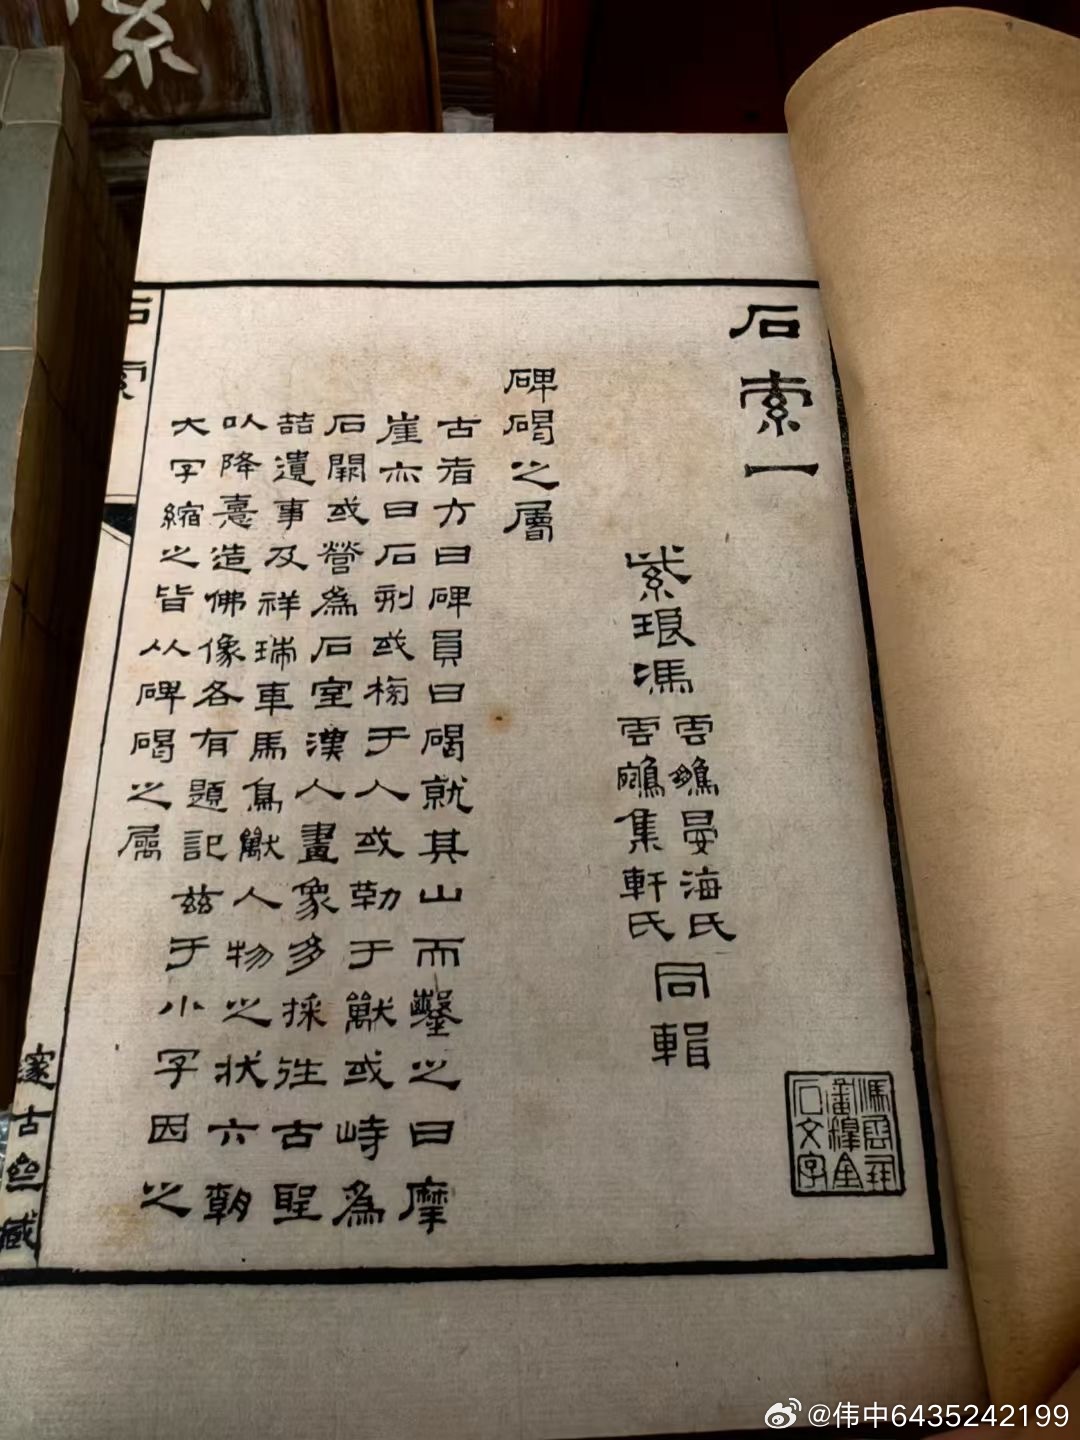 石索一
紫琅馮
雲鵬晏海氏
雲鵷集軒氏
同輯
碑碣之屬
古者方曰碑員曰碣就其山而鑿之曰摩
崖亦曰石刻或于人或勒于獸或峙為
石闕或營為石室漢人畫象多採往古聖
喆遺事及祥瑞車馬鳥獸人物之狀六朝
以降憙造佛像各有題記茲于小字因之
大字縮之皆从碑碣之屬
石索
邃古齋藏
石文字
@伟中6435242199